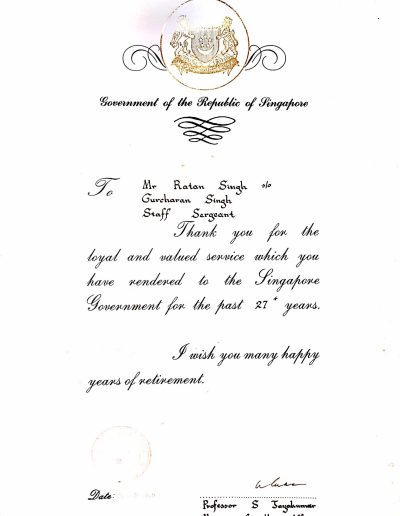 Government of the Republic of Singapore
To Mr Ratan Singh s/o
Gurcharan Singh
Staff Sergeant
Thank you for the
loyal and valued service which you
have rendered to the Singapore
Government for the past 27+ years.
I wish you many happy
years of retirement.
Date:
Professor S Jayakumar